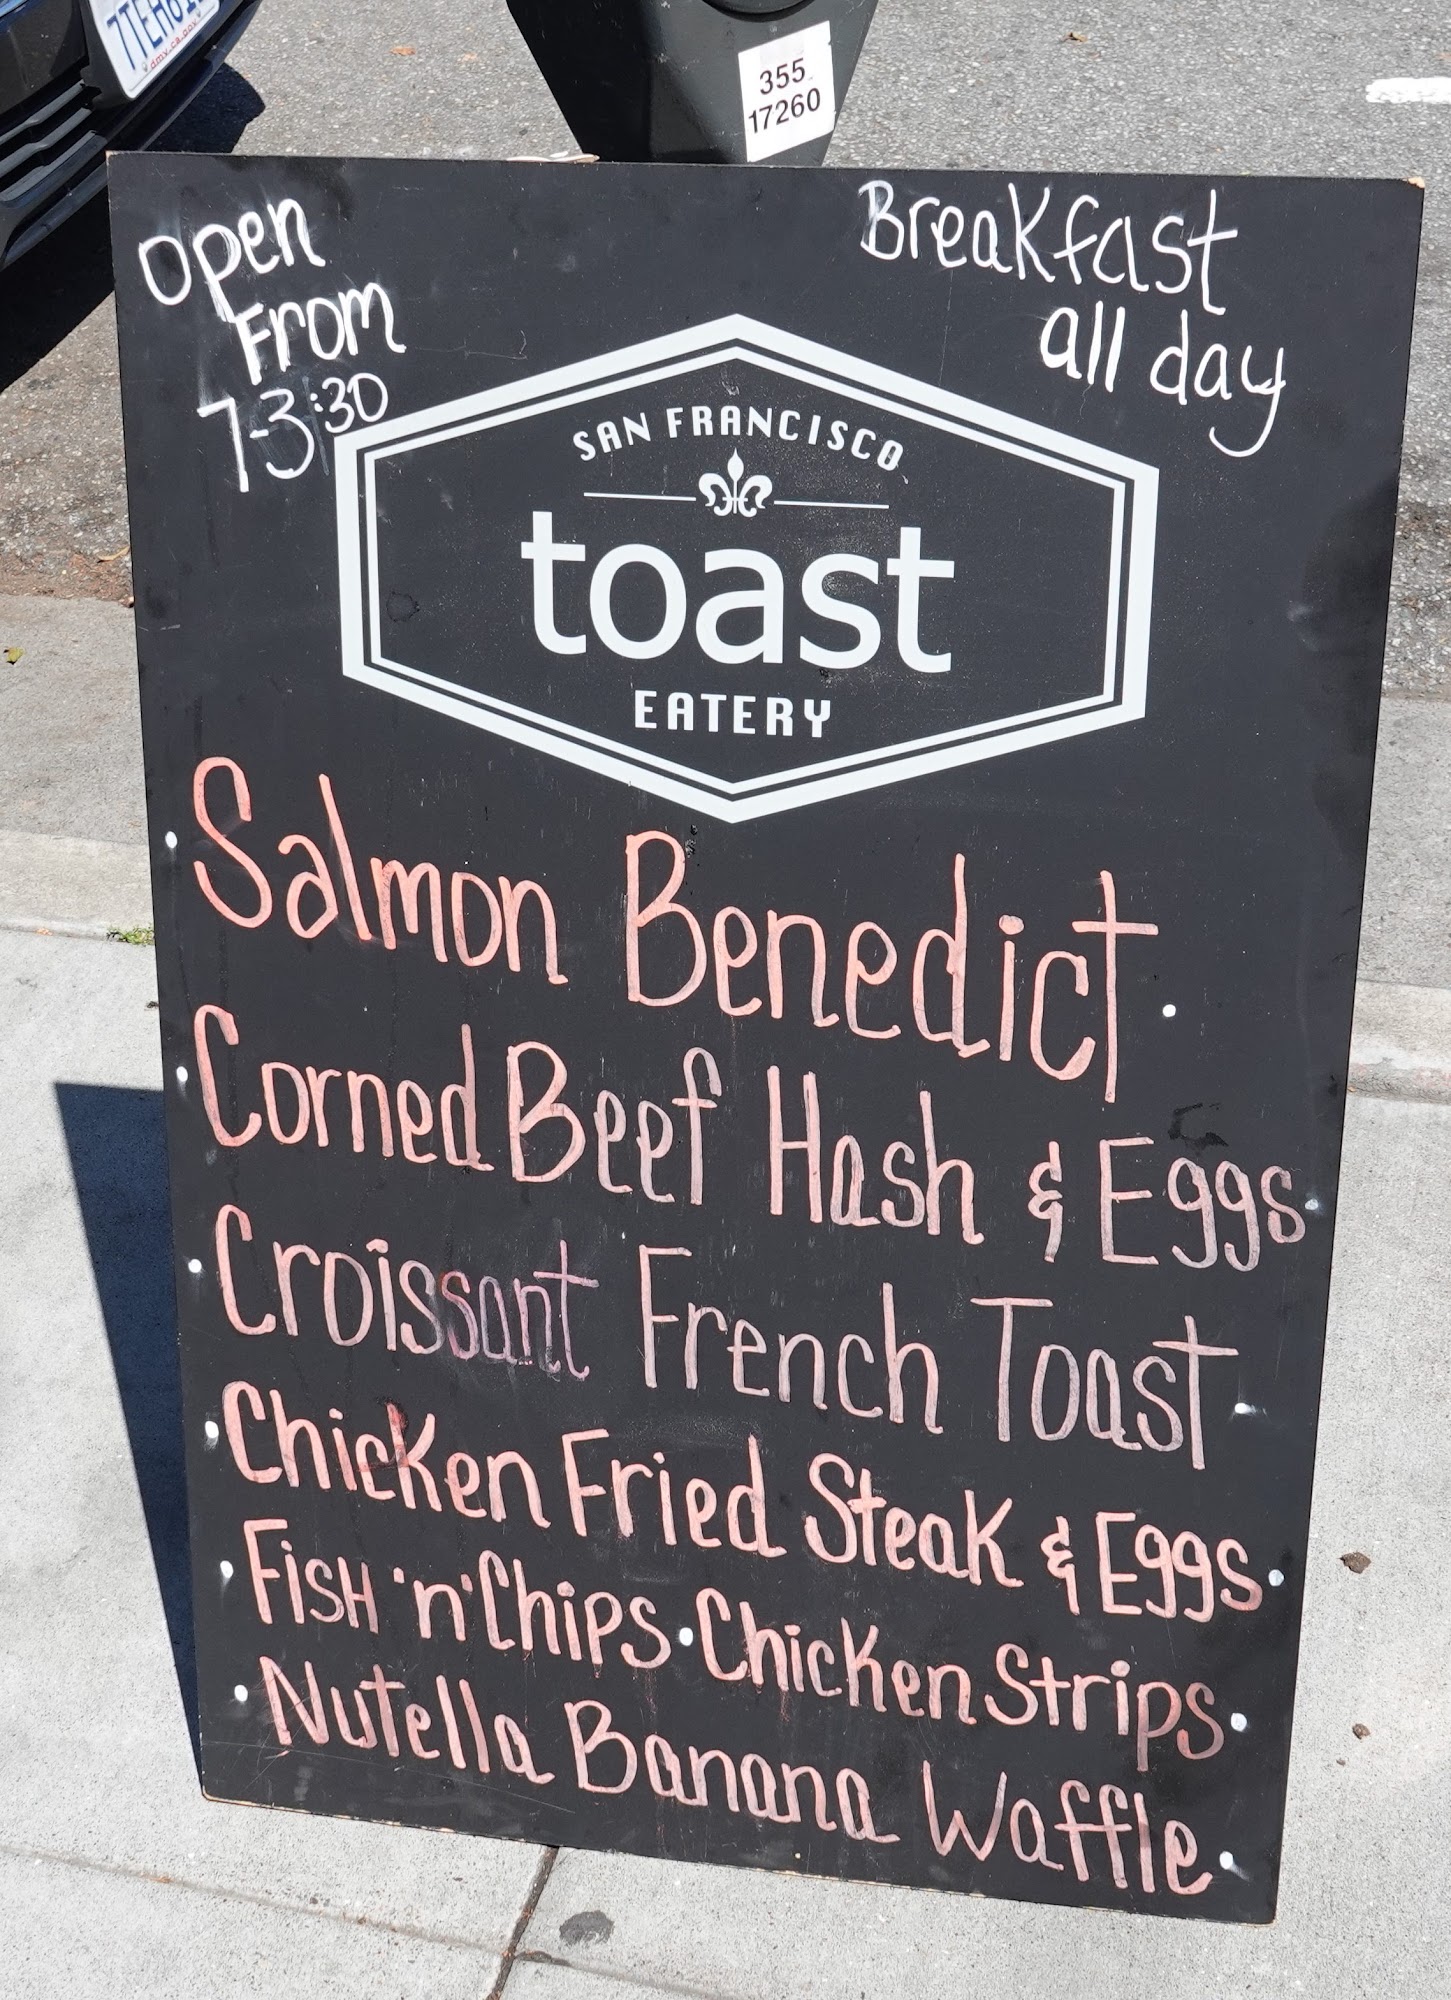 7TEH61
dmv.ca.gov
355
17260
open
From
7-3:30
Breakfast
all day
SAN FRANCISCO
toast
EATERY
• Salmon Benedict •
• Corned Beef Hash & Eggs •
• Croissant French Toast •
• Chicken Fried Steak & Eggs •
• Fish 'n' Chips • Chicken Strips •
• Nutella Banana Waffle •